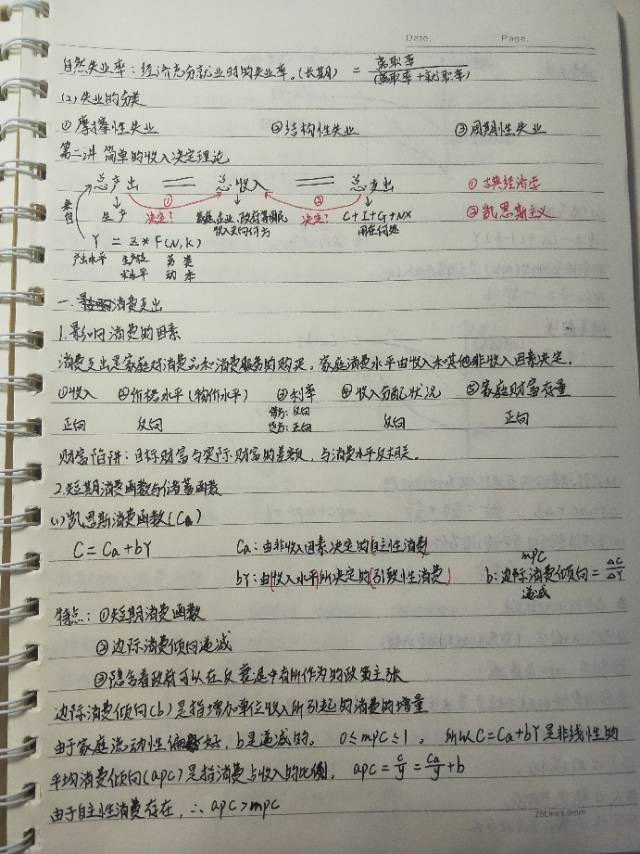 Date. Page.
自然失业率：经济充分就业时的失业率。(长期) = 离职率/(离职率+就职率)
(2)失业的分类
①摩擦性失业 ②结构性失业 ③周期性失业
第二讲 简单的收入决定理论
总产出 = 总收入 = 总支出 ①古典经济学
① ②
生产 决定? 家庭、企业、政府等 决定? C+I+G+NX ②凯恩斯主义
收入 用在何处
Y = Z * F(N,K)
产出水平 生产 劳 资
水平 动 本
一.消费支出
1.影响消费的因素
消费支出是家庭对消费品和消费服务的购买，家庭消费水平由收入和其他非收入因素决定。
①收入 ②价格水平(物价水平) ③利率 ④收入分配状况 ⑤家庭财富存量
正向 反向 反向 正向 反向 正向
财富陷阱：目标财富与实际财富的差额，与消费水平反相关。
2.短期消费函数与储蓄函数
(1)凯恩斯消费函数(Ca)
C=Ca+bY Ca:由非收入因素决定的(自主性消费) mpc
bY:由(收入水平)所决定的(引致性消费) b:边际消费倾向=ΔC/ΔY
递减
特点：①短期消费函数
②边际消费倾向递减
③隐含着政府可以在反衰退中有所作为的政策主张
边际消费倾向(b)是指增加单位收入所引起的消费的增量
由于家庭流动性偏好，b是递减的。0≤mpc≤1。所以C=Ca+bY是非线性的
平均消费倾向(apc)是指消费占收入的比例，apc=c/y=Ca/y+b
由于自主性消费存在，∴apc>mpc